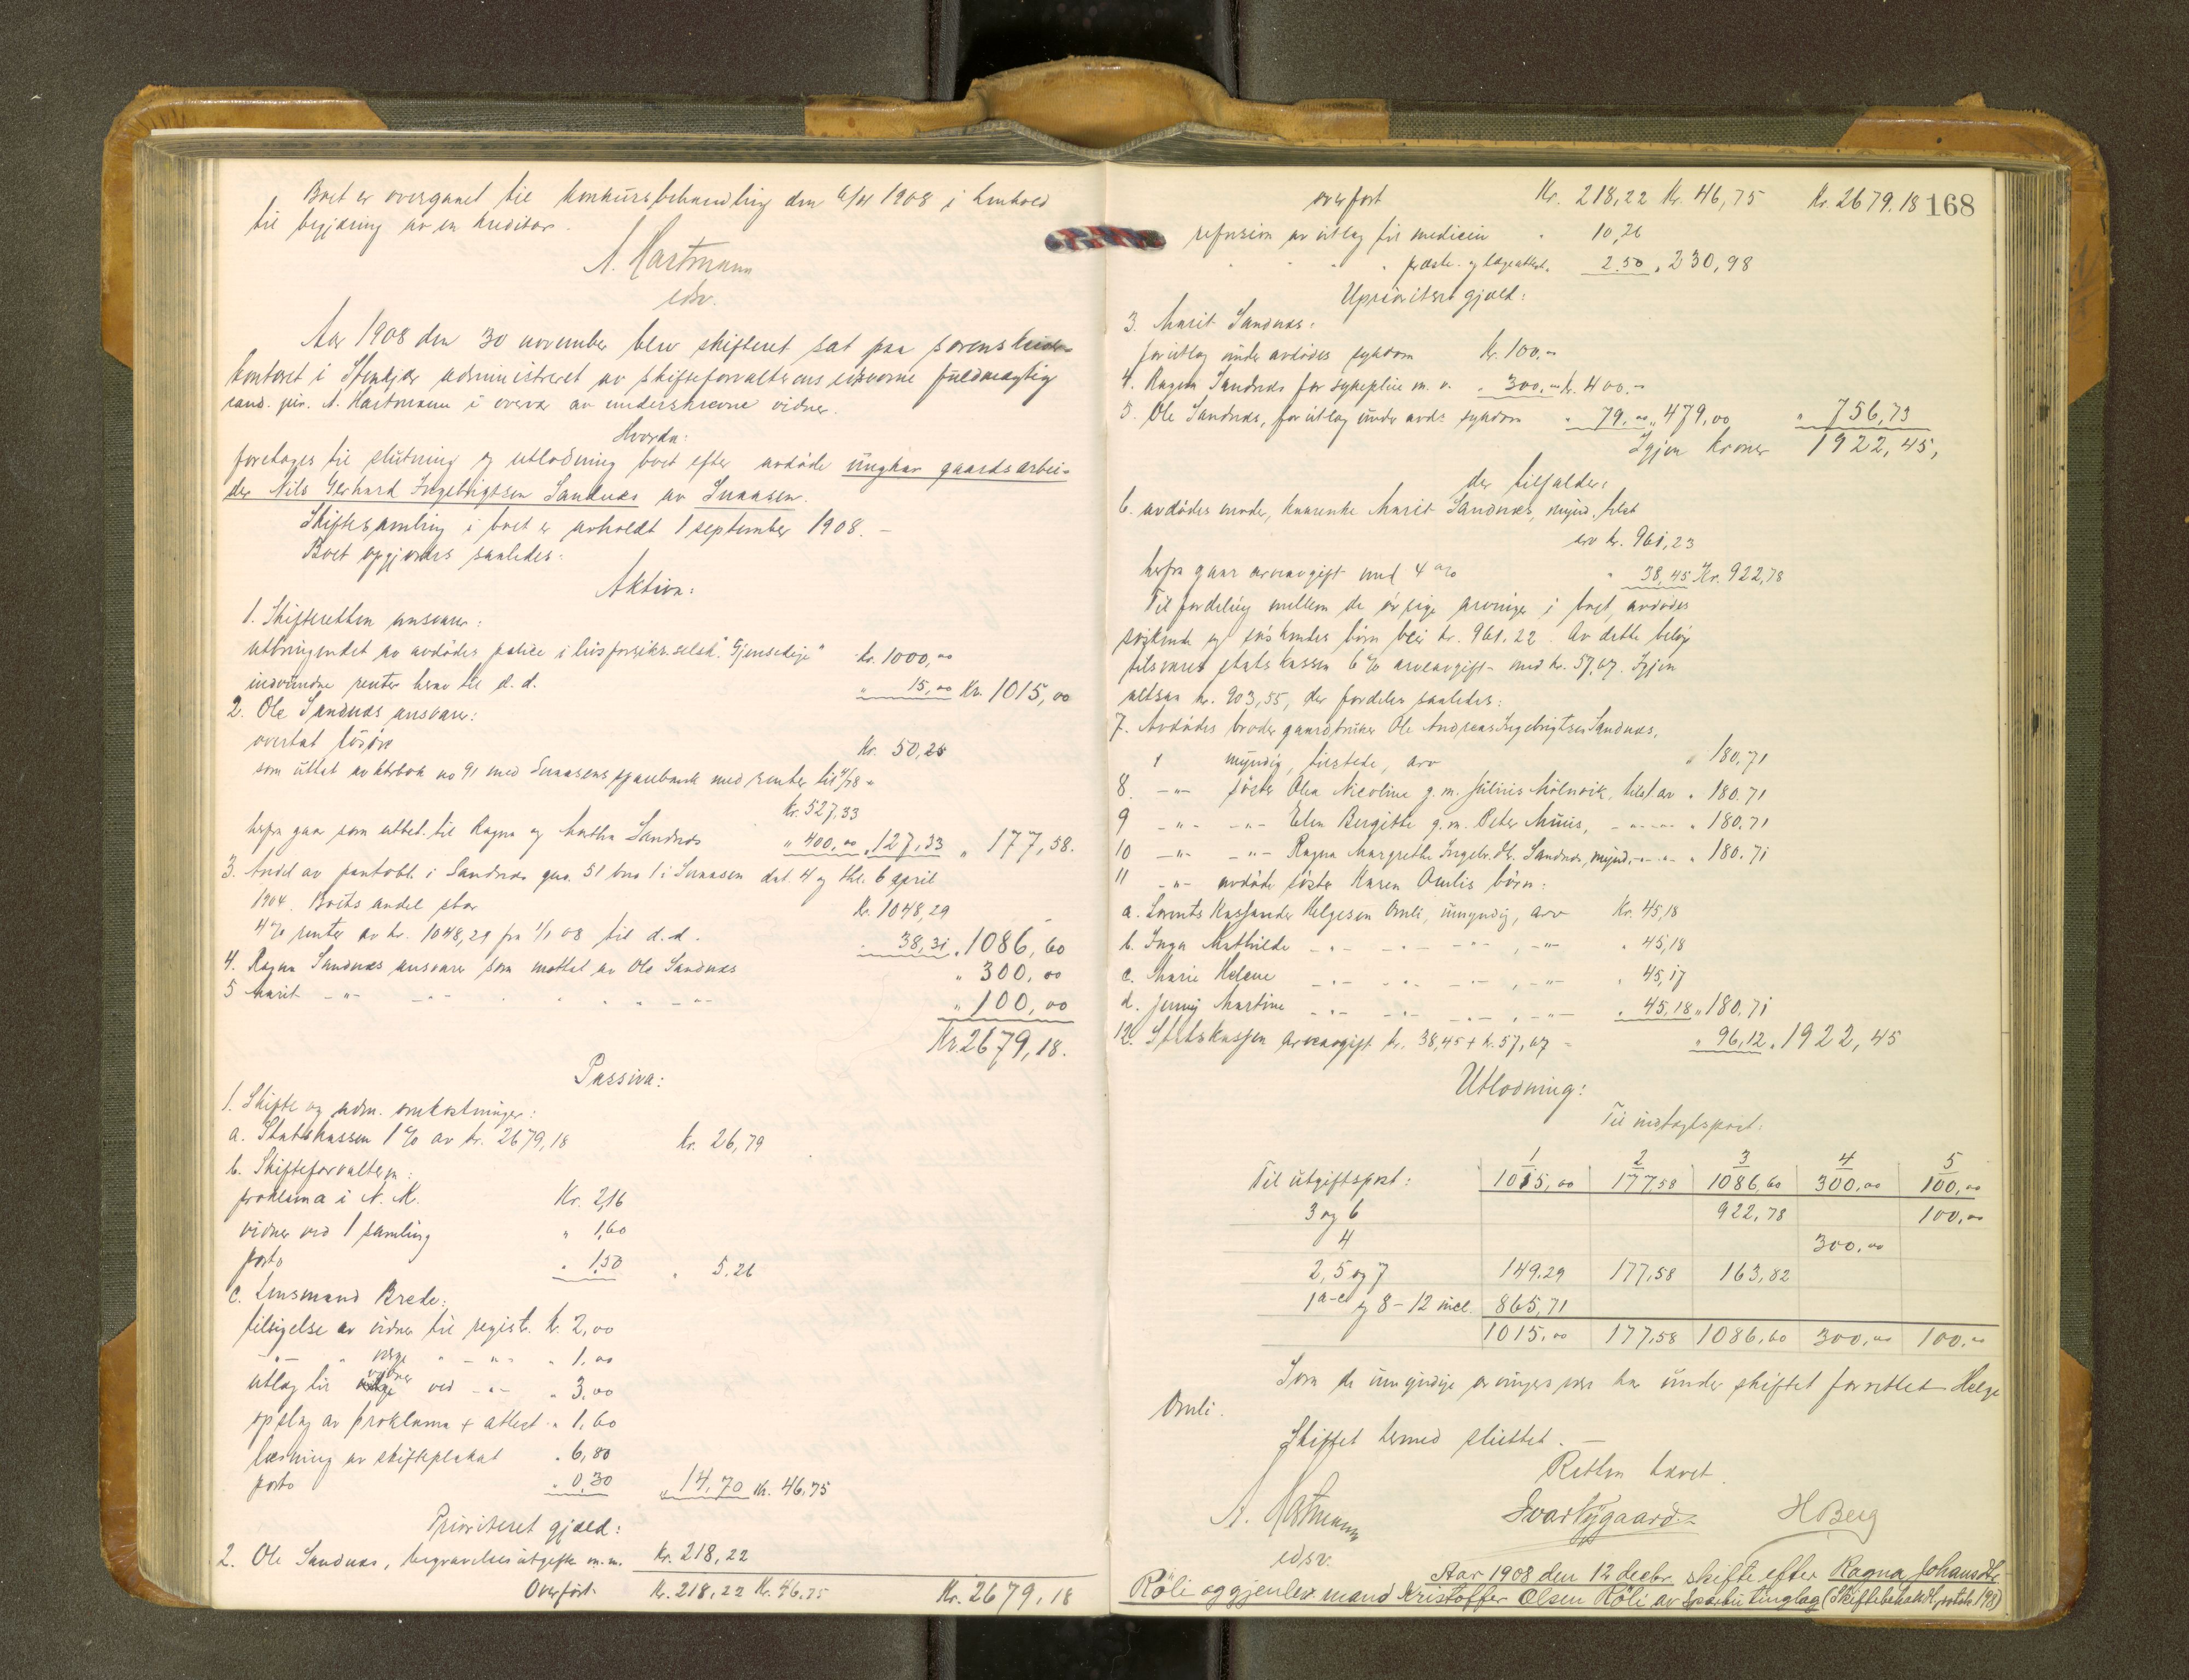 Boet er overgaaet til konkursbehandling den 6/11 1908 i henhold
til begjæring av en kreditor.
A. Hartmann
edsv.
Aar 1908 den 30 november blev skifteret sat paa sorenskriver-
kontoret i Stenkjær administreret av skifteforvalterens edsvorne fuldmægtig
cand. jur. A. Hartmann i overvær av underskrevne vidner.
Hvorda:
foretages til slutning og utlodning boet efter avdøde ungkar gaardsarbei-
der Nils Gerhard Ingebrigtsen Sandnæs av Snaasen.
Skiftesamling i boet er avholdt 1 september 1908. –
Boet opgjøres saaledes:
Aktiva:
1. Skifteretten ansvarer:
utbringendet av avdødes police i livsforsikr.selsk. "Gjensidige" kr. 1000,00
indvundne renter herav til d.d. " 15,00 Kr. 1015,00
2. Ole Sandnæs ansvarer:
overtat løsøre Kr. 50,25
som uttat av ktrbok no 91 med Snaasens sparebank med renter til
Kr. 527,33
herfra gaar som utbet. til Ragna og Marthe Sandnæs " 400,00 " 127,33 " 177,58.
3. Andel av pantobl. i Sandnæs gno. 51 bno 1 i Snaasen dat. 4 og thl. 6 april
1904. Boets andel stor Kr. 1048,29
4% renter av kr. 1048,29 fra 1/1 08 til d.d. " 38,31 " 1086,60
4. Ragna Sandnæs ansvarer som mottat av Ole Sandnæs " 300,00
5 Marit -"- -"- " " " -"- " 100,00
Kr. 2679,18.
Passiva:
1. Skifte og adm. omkostninger:
a. Statskassen 1% av kr. 2679,18 kr. 26,79
b. Skifteforvalteren:
proklama i N. K. Kr. 2,16
vidner ved 1 samling " 1,60
porto " 1,50 " 5,26
c. Lensmand Brede:
tilsigelse av vidner til registr. kr. 2,00
-"- " værge " -"- " 1,00
utlæg til vidner ved -"- " 3,00
opslag av proklama + attest " 1,60
læsning av skifteplakat " 6,80
porto " 0,30 " 14,70 Kr. 46,75
Prioriteret gjæld:
2. Ole Sandnæs, begravelsesutgifter m.m. Kr. 218,22
Overført Kr. 218,22 Kr. 46,75 Kr. 2679,18
168
overført Kr. 218,22 Kr. 46,75 Kr. 2679,18
refusion av utlæg til medicin " 10,26
" " " præste- og lægeattest. 2,50 " 230,98
Uprioritert gjæld:
3. Marit Sandnæs:
for utlæg under avdødes sykdom kr. 100,00
4. Ragna Sandnæs for sykepleie m. v. " 300,00 kr. 400,00
5. Ole Sandnæs, for utlæg under avd.s sykdom " 79,00 " 479,00 " 756,73
Igjen kroner 1922,45,
der tilfalder:
6. avdødes moder, kaarenke Marit Sandnæs, mynd. tilst
arv kr. 961,23
herfra gaar arveavgift med 4 % " 38,45 Kr. 922,78
Til fordeling mellem de øvrige arvinger i boet, avdødes
søskende og søskendes børn blir kr. 961,22. Av dette beløp
tilsvares statskassen 6 % arveavgift med kr. 57,67. Igjen
altsaa kr. 903,55, der fordeles saaledes:
7. Avdødes broder gaardbruker Ole Andreas Ingebrigtsen Sandnæs,
myndig, tilstede, arv " 180,71
8. -"- søster Olea Nicoline g.m. Julius Mølnvik, tilst. arv " 180,71
9 -"- -"- Elen Bergitte g.m. Peter Muus, -"- -"- " 180,71
10 -"- -"- Ragna Margrethe Ingebr.dtr. Sandnæs, mynd. -"- -"- " 180,71
11 -"- avdøde søster Karen Omlis børn:
a. Lorents Kassander Helgesen Omli, umyndig, arv Kr. 45,18
b. Inga Mathilde -"- -"- -"- , -"- " 45,18
c. Marie Helene -"- -"- -"- , -"- " 45,17
d. Jenny Martine -"- -"- -"- , -"- " 45,18 " 180,71
12. Statskassen arveavgift kr. 38,45 + kr. 57,67 = " 96,12 " 1922,45
Utlodning:
Til indtægtspost:
1 2 3 4 5
Til utgiftspost: 1015,00 177,58 1086,60 300,00 100,00
3 og 6 922,78 100,00
4 300,00
2, 5 og 7 149,29 177,58 163,82
1a-c og 8–12 incl. 865,71
1015,00 177,58 1086,60 300,00 100,00
Som de umyndige arvingers verge har under skiftet forrettet Helge
Omli.
Skiftet hermed sluttet. –
Retten hævet.
A. Hartmann Ivar Nygaard H Berg
edsv.
Aar 1908 den 12 decbr. skifte efter Ragna Johansdtr
Røli og gjenlev. mand Kristoffer Olsen Røli av Sparbu tinglag (Skiftebehandl. protok. 198)